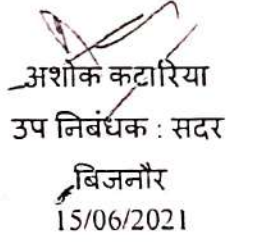 अशोक कटारिया
उप निबंधक : सदर
बिजनौर
15/06/2021